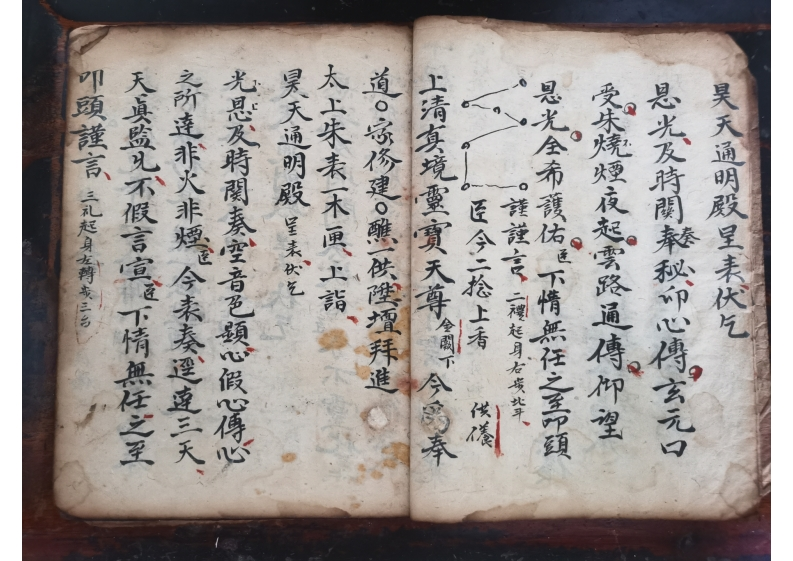 昊天通明殿呈表伏乞
恩光及時關奏秘卯心傳玄元口
受朱燒煙夜起雲路通傳仰望
恩光全希護佑臣下情無任之至叩頭
謹謹言 二禮起身右步北斗
臣今二捻上香 供養
上清真境靈寶天尊 金闕下 今為奉
道○家修建○醮一供陞壇拜進
太上朱表一木匣上詣
昊天通明殿 呈表伏乞
光恩及時関奏空音色顯心假心傳心
之所達非火非煙臣今表奏逕達三天
天真監凡不假言宣臣下情無任之至
叩頭謹言 三礼起身左轉步三台